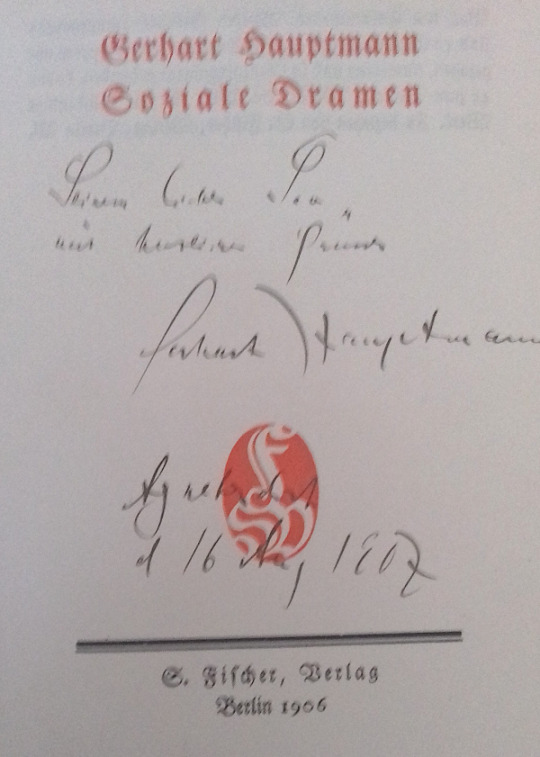 Gerhart Hauptmann
Soziale Dramen
Seinem lieben
mit herzlichem
Gerhart Hauptmann
Agnetendorf
d 16 Aug 1907
S. Fischer, Verlag
Berlin 1906